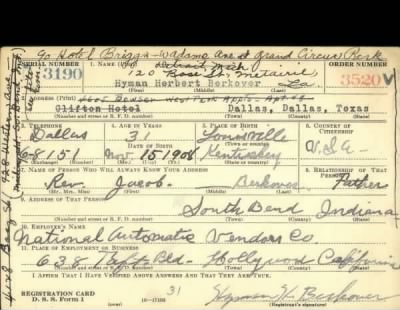 Go Hotel Briggs - Adams Ave at Grand Circus Park
Detroit Mich
SERIAL NUMBER 1. NAME (Print) ORDER NUMBER
3190 120 Rose St. Metairie, La. 3520 V
Hyman Herbert Berkover
Clifton Hotel Dallas, Dallas, Texas
(Number and street or R. F. D. number) (Town) (County) (State)
3. TELEPHONE 4. AGE IN YEARS 5. PLACE OF BIRTH 6. COUNTRY OF CITIZENSHIP
Dallas 31 Louisville
DATE OF BIRTH (Town or county)
6-8151 Nov 15 1908 Kentuckey U.S.A.
(Exchange) (Number) (Mo.) (Day) (Yr.) (State or country)
7. NAME OF PERSON WHO WILL ALWAYS KNOW YOUR ADDRESS 8. RELATIONSHIP OF THAT PERSON
Rev. Jacob Berkover Father
(Mr., Mrs., Miss) (First) (Middle) (Last)
9. ADDRESS OF THAT PERSON
South Bend Indiana
(Number and street or R. F. D. number) (Town) (County) (State)
10. EMPLOYER'S NAME
National Automatic Vendors Co.
11. PLACE OF EMPLOYMENT OR BUSINESS
638 Taft Bld. Hollywood California
(Number and street or R. F. D. number) (Town) (County) (State)
I AFFIRM THAT I HAVE VERIFIED ABOVE ANSWERS AND THAT THEY ARE TRUE.
REGISTRATION CARD
D. S. S. Form 1 16-17105 31 Hyman H Berkover
(Registrant's signature)